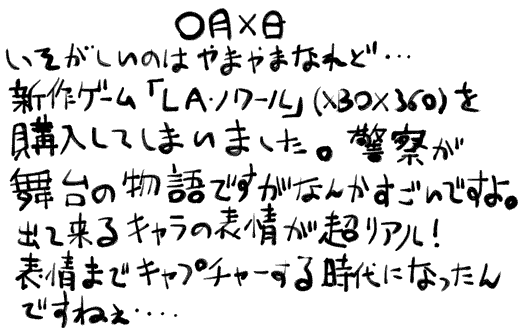 〇月×日
いそがしいのはやまやまなれど…
新作ゲーム「LA・ノワール」(XBOX360)を
購入してしまいました。警察が
舞台の物語ですがなんかすごいですよ。
出て来るキャラの表情が超リアル!
表情までキャプチャーする時代になったん
ですねぇ‥‥